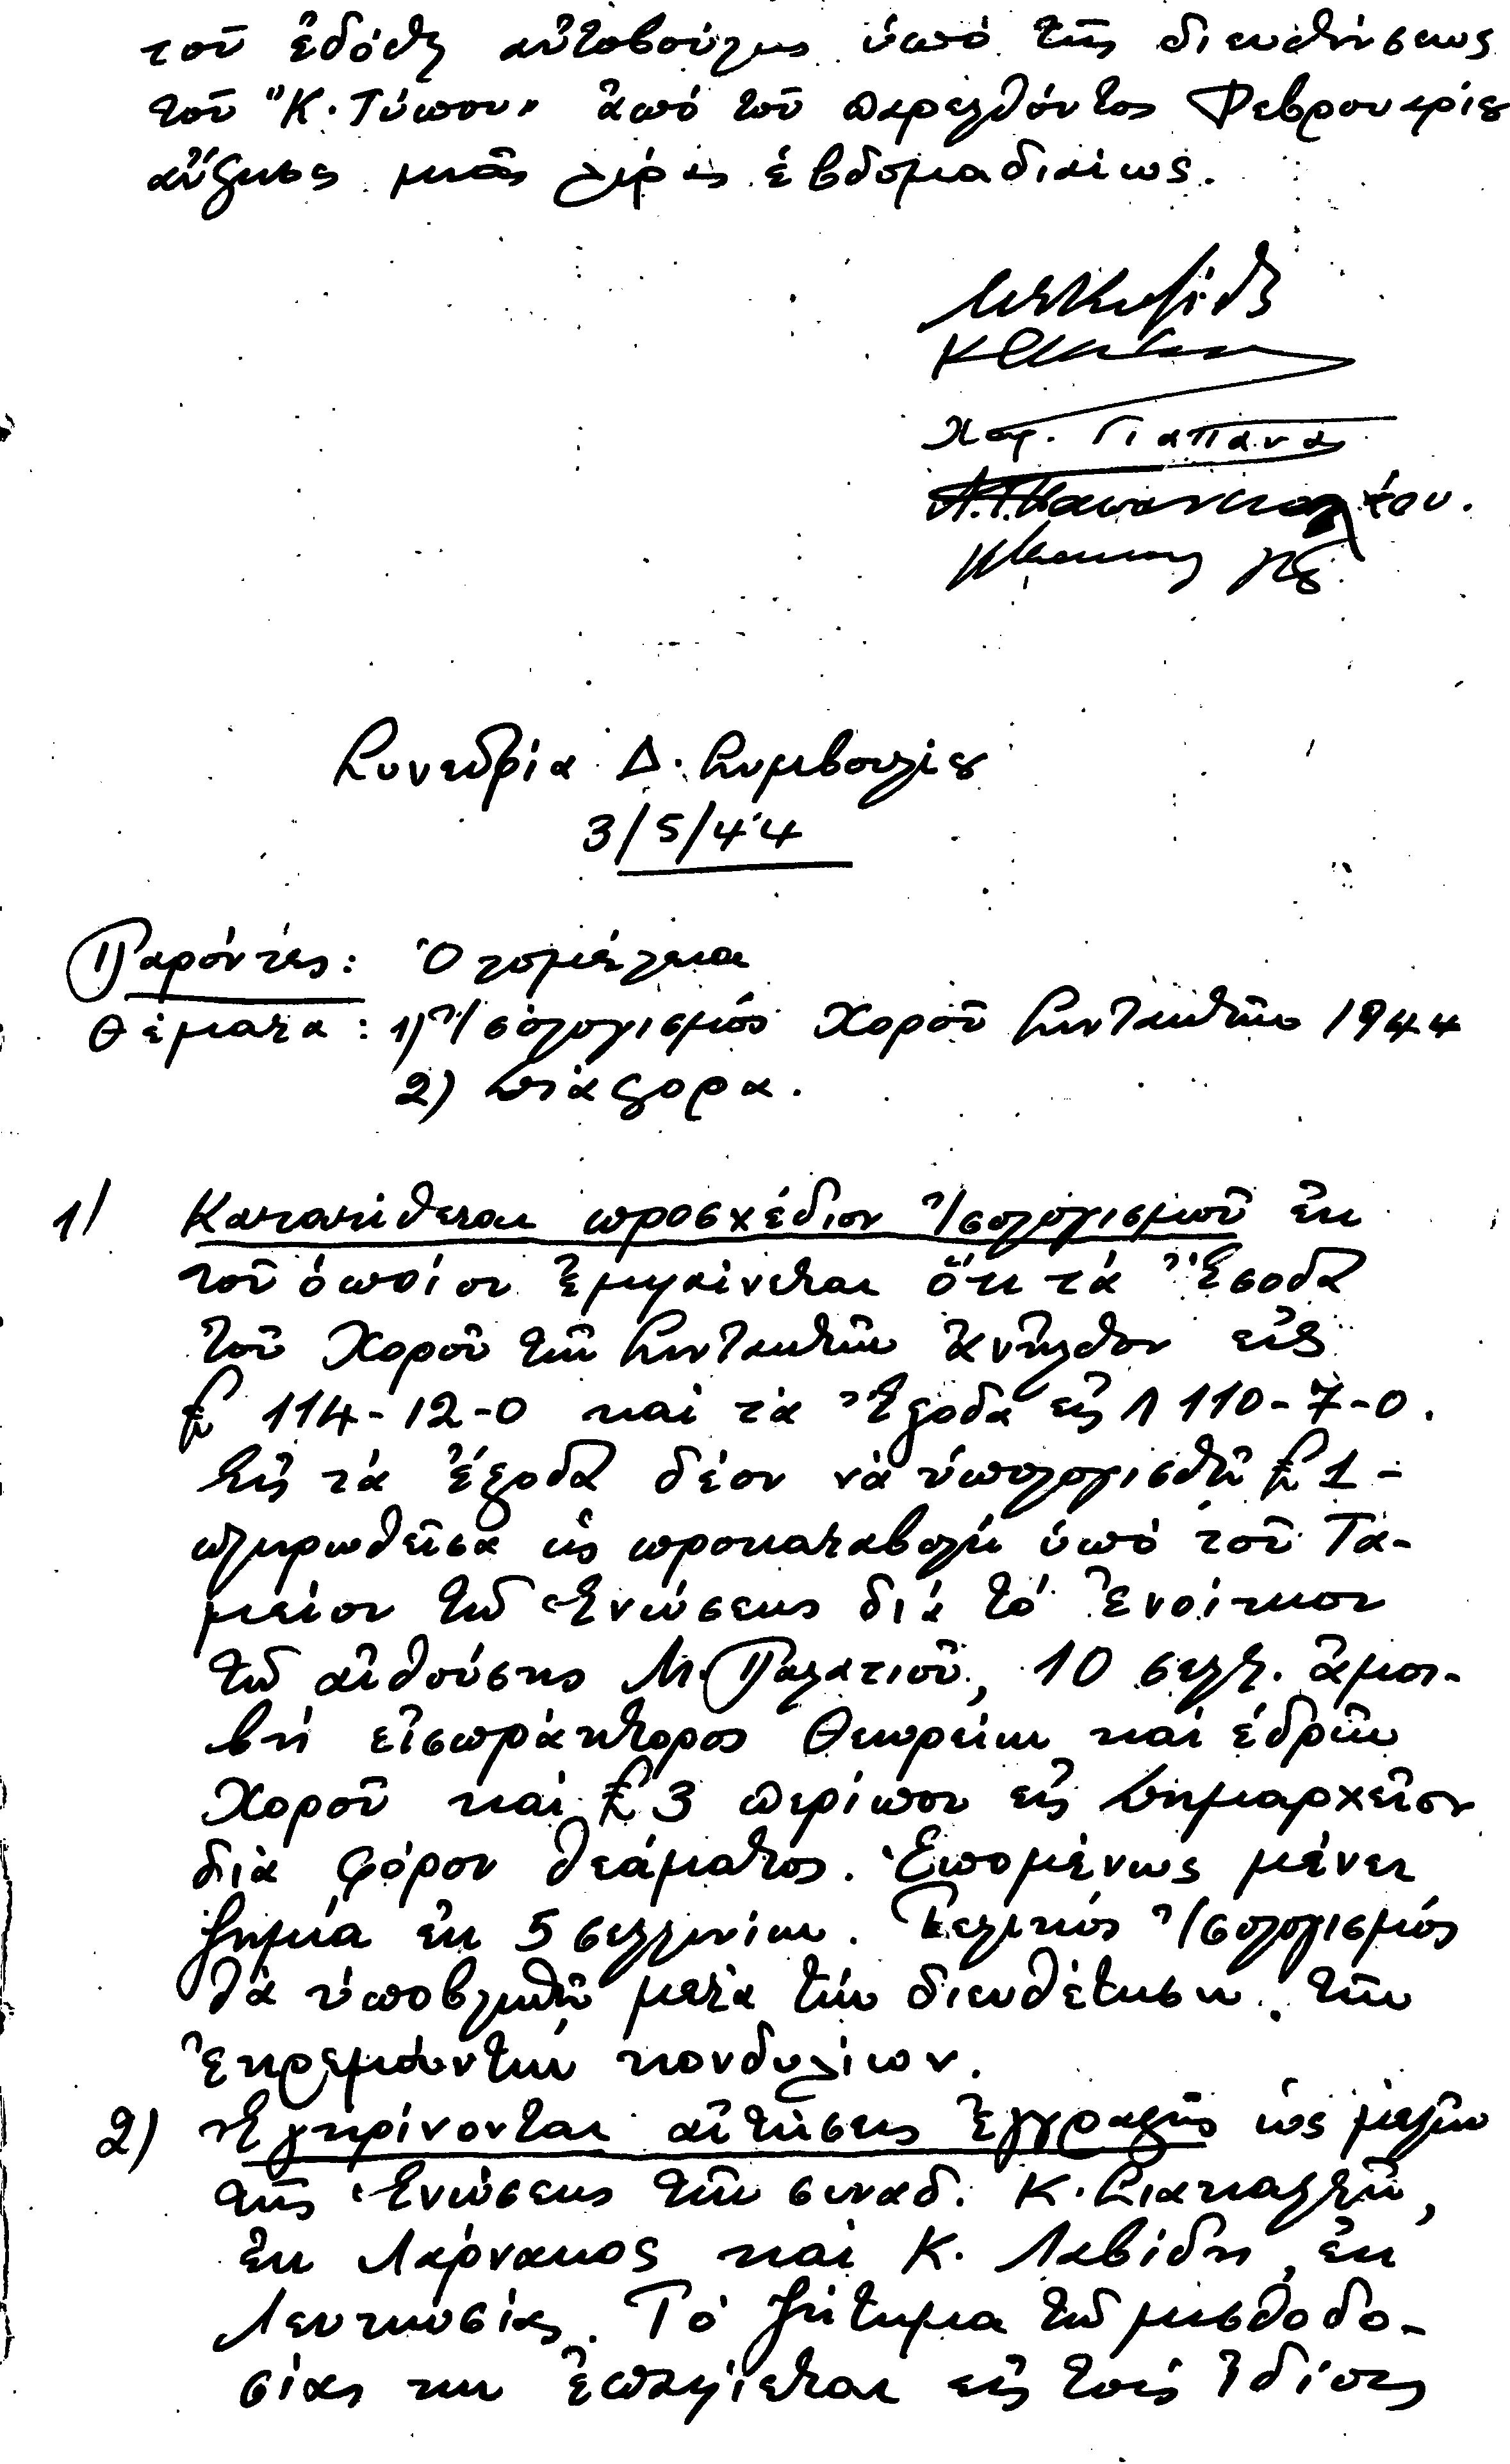 τοῦ ἐδόθη αὐτοβούλως ὑπό τῆς διευθύνσεως
τοῦ "Κ. Τύπου" ἀπό τοῦ παρελθόντος Φεβρουαρίου
αὔξησις μιᾶς λίρας ἑβδομαδιαίως.
Χαρ. Παπανα
Συνεδρία Δ. Συμβουλίου
3/5/44
Παρόντες: Ὁλομέλεια
Θέματα: 1) Ἰσολογισμός Χοροῦ Συντακτῶν 1944
2) Διάφορα.
1/ Κατατίθεται προσχέδιον Ἰσολογισμοῦ ἐκ
τοῦ ὁποίου ἐμφαίνεται ὅτι τά Ἔσοδα
τοῦ Χοροῦ τῶν Συντακτῶν ἀνῆλθον εἰς
£ 114-12-0 καί τά Ἔξοδα εἰς Λ 110-7-0.
Εἰς τά ἔξοδα δέον νά ὑπολογισθῆ £1-
πληρωθεῖσα ὡς προκαταβολή ὑπό τοῦ Τα-
μείου τῆς Ἑνώσεως διά τό ἐνοίκιον
τῆς αἰθούσης Μ. Παλατιοῦ, 10 σελ. ἀμοι-
βή εἰσπράκτορος Θεωρείων καί ἑδρῶν
Χοροῦ καί £3 περίπου εἰς Δημαρχεῖον
διά φόρον θεάματος. Ἑπομένως μένει
ζημία ἐκ 5 σελλινίων. Τελικός Ἰσολογισμός
θά ὑποβληθῆ μετά τήν διευθέτησιν τῶν
ἐκρεμούντων κονδυλίων.
2) Ἐγκρίνονται αἰτήσεις ἐγγραφῆς ὡς μελῶν
τῆς Ἑνώσεως τῶν συναδ. Κ.
ἐκ Λάρνακος καί Κ. Λαβίδη, ἐκ
Λευκωσίας. Τό ζήτημα τῆς μισθοδο-
σίας των ἐπαφίεται εἰς τούς ἰδίους